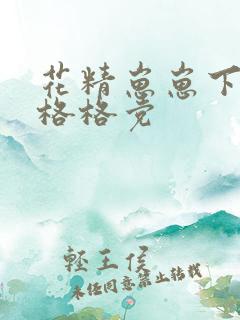 花精崽崽下
格格党
軽王侯
未经同意禁止转载